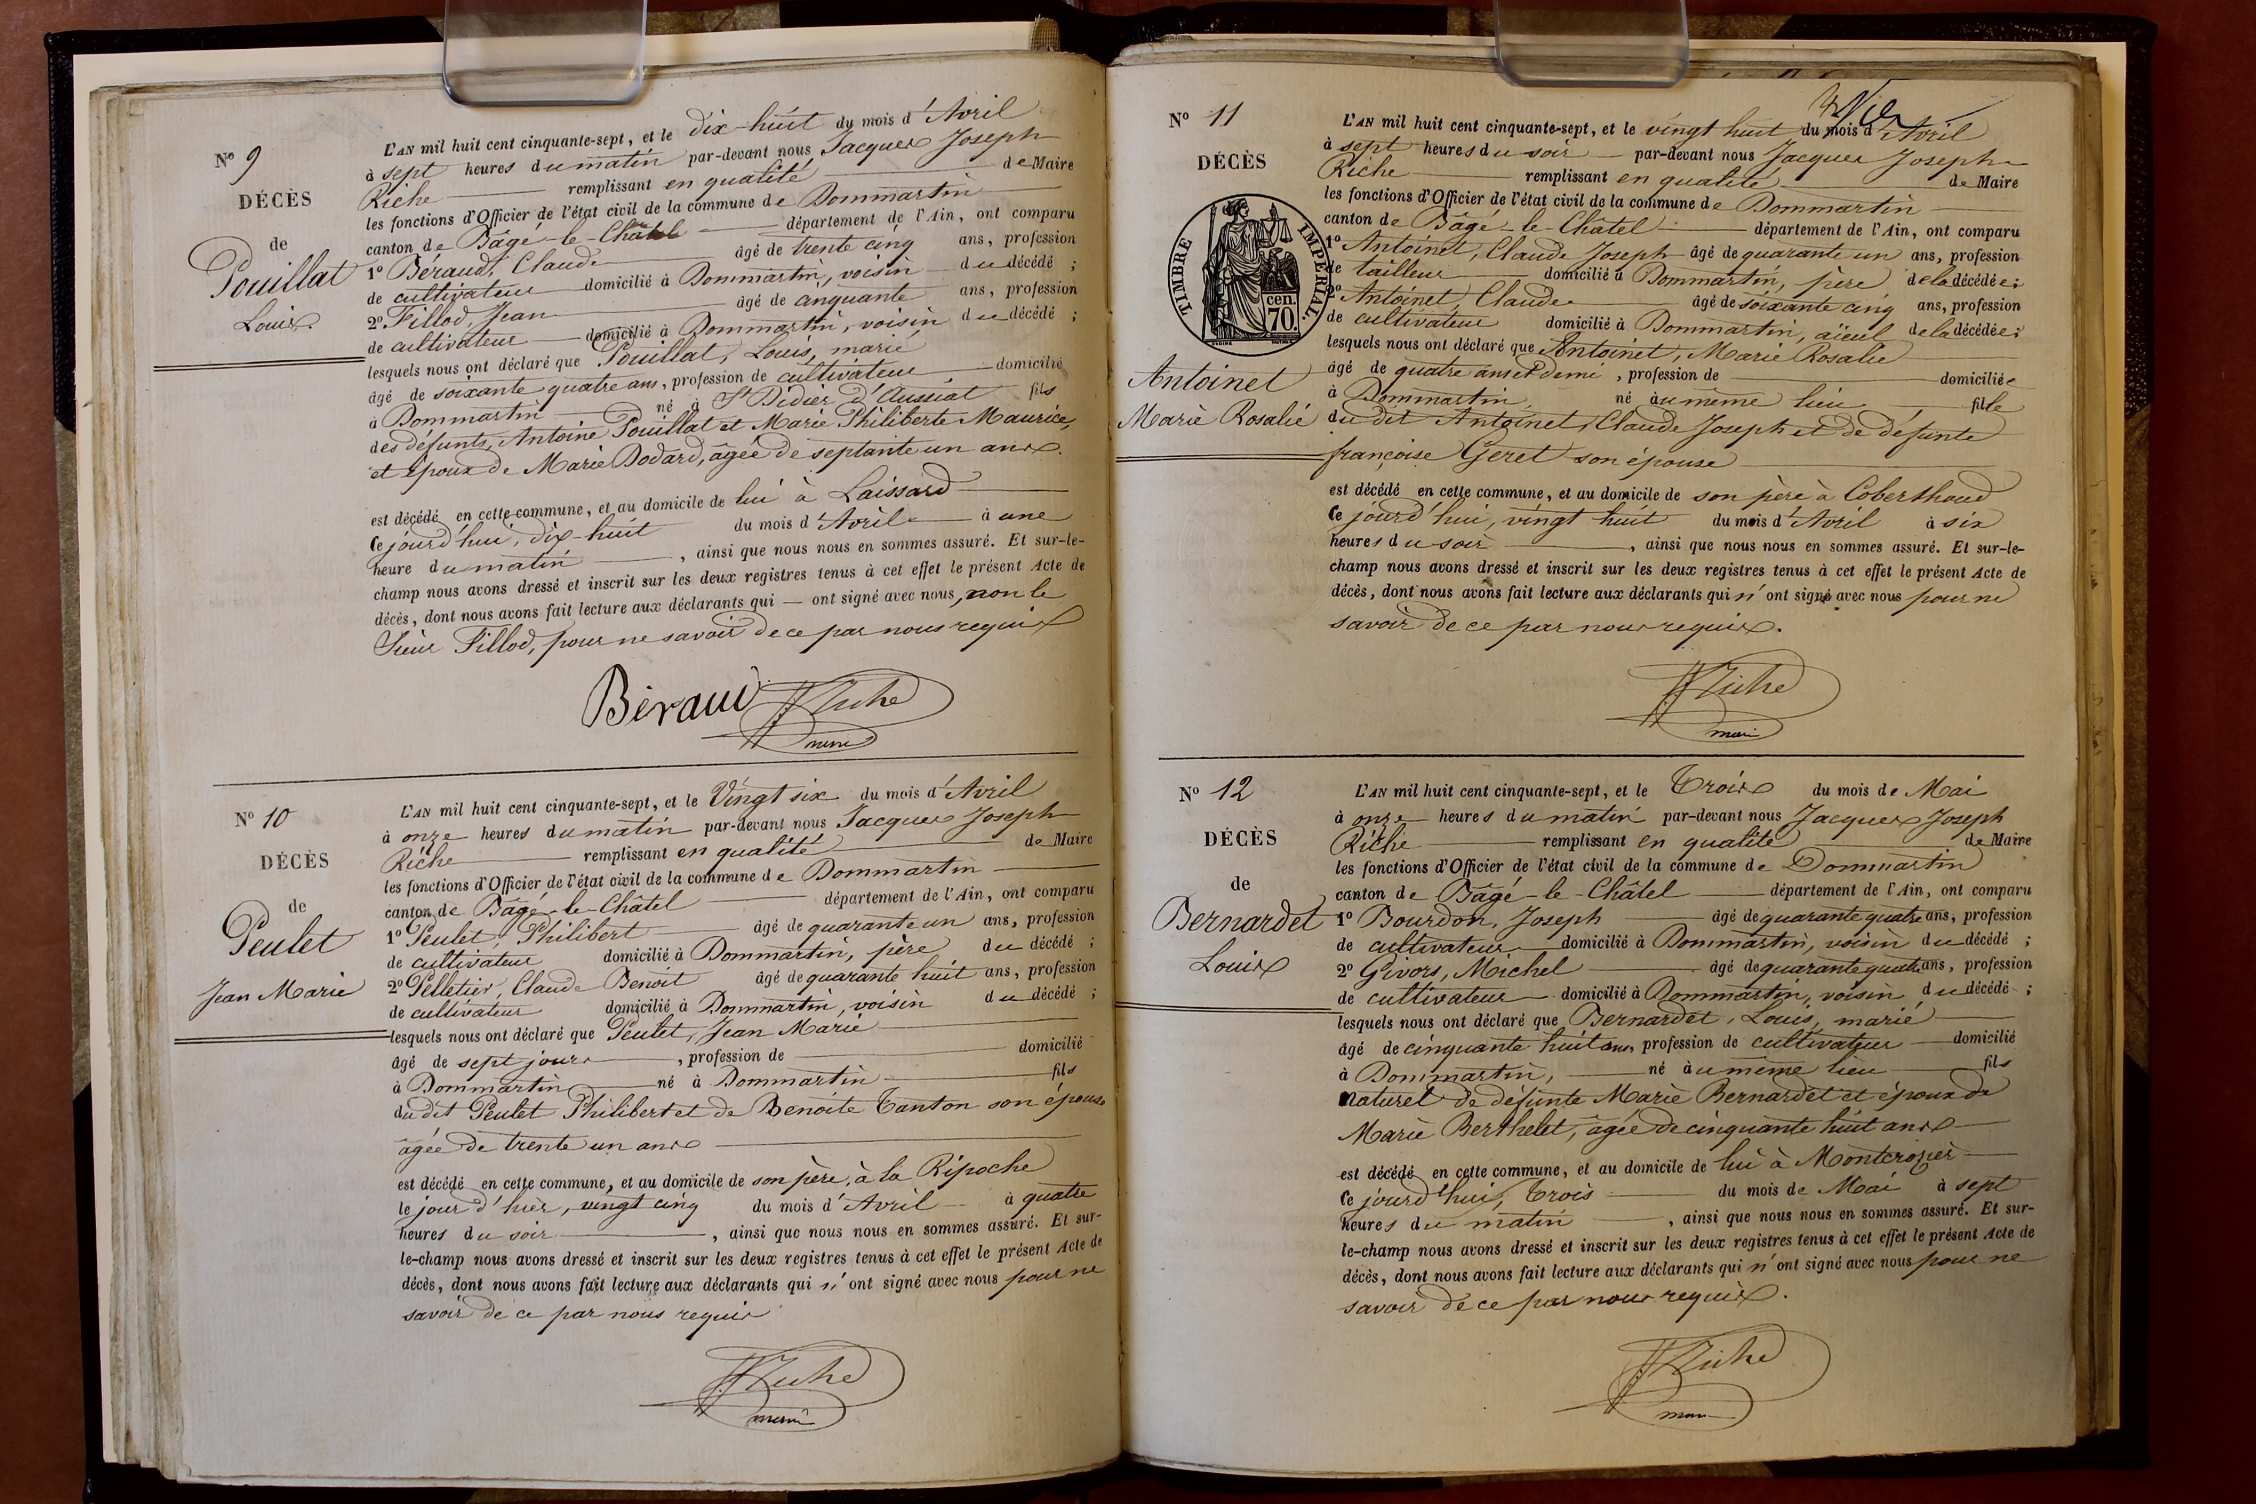 N° 9
DÉCÈS
de
Pouillat
Louis
L'AN mil huit cent cinquante-sept, et le dix-huit du mois d'Avril
à sept heures du matin par-devant nous Jacques Joseph
Riche remplissant en qualité de Maire
les fonctions d'Officier de l'état civil de la commune de Dommartin
canton de Bâgé-le-Châtel département de l'Ain, ont comparu
1° Béraud, Claude âgé de trente cinq ans, profession
de cultivateur domicilié à Dommartin, voisin du décédé ;
2° Fillod, Jean âgé de cinquante ans, profession
de cultivateur domicilié à Dommartin, voisin du décédé ;
lesquels nous ont déclaré que Pouillat, Louis, marié
âgé de soixante quatre ans, profession de cultivateur domicilié
à Dommartin né à St Didier d'Aussiat fils
des défunts, Antoine Pouillat et Marie Philiberte Maurice,
et époux de Marie Dodard, âgée de septante un ans.
est décédé en cette commune, et au domicile de lui à Laissard
Ce jourd'hui, dix-huit du mois d'Avril à une
heure du matin , ainsi que nous nous en sommes assuré. Et sur-le-
champ nous avons dressé et inscrit sur les deux registres tenus à cet effet le présent Acte de
décès, dont nous avons fait lecture aux déclarants qui — ont signé avec nous, non le
Sieur Fillod, pour ne savoir de ce par nous requis
Béraud JJRiche
maire
N° 10
DÉCÈS
de
Peulet
Jean Marie
L'AN mil huit cent cinquante-sept, et le Vingt six du mois d'Avril
à onze heures du matin par-devant nous Jacques Joseph
Riche remplissant en qualité de Maire
les fonctions d'Officier de l'état civil de la commune de Dommartin
canton de Bâgé-le-Châtel département de l'Ain, ont comparu
1° Peulet, Philibert âgé de quarante un ans, profession
de cultivateur domicilié à Dommartin, père du décédé ;
2° Pelletier, Claude Benoit âgé de quarante huit ans, profession
de cultivateur domicilié à Dommartin, voisin du décédé ;
lesquels nous ont déclaré que Peulet, Jean Marie
âgé de sept jours , profession de domicilié
à Dommartin né à Dommartin fils
du dit Peulet Philibert et de Benoite Tanton son épouse
âgée de trente un ans
est décédé en cette commune, et au domicile de son père, à la Ripoche
le jour d'hier, vingt cinq du mois d'Avril à quatre
heures du soir , ainsi que nous nous en sommes assuré. Et sur-
le-champ nous avons dressé et inscrit sur les deux registres tenus à cet effet le présent Acte de
décès, dont nous avons fait lecture aux déclarants qui n'ont signé avec nous pour ne
savoir de ce par nous requis
JJRiche
maire
N° 11
DÉCÈS
TIMBRE IMPÉRIAL.
cen.
70.
Antoinet
Marie Rosalie
L'AN mil huit cent cinquante-sept, et le vingt huit du mois d'Avril
à sept heures du soir par-devant nous Jacques Joseph
Riche remplissant en qualité de Maire
les fonctions d'Officier de l'état civil de la commune de Dommartin
canton de Bâgé-le-Châtel département de l'Ain, ont comparu
1° Antoinet, Claude Joseph âgé de quarante un ans, profession
de tailleur domicilié à Dommartin, père de la décédée ;
2° Antoinet, Claude âgé de soixante cinq ans, profession
de cultivateur domicilié à Dommartin, aïeul de la décédée ;
lesquels nous ont déclaré que Antoinet, Marie Rosalie
âgé de quatre ans et demi , profession de domiciliée
à Dommartin, né au même lieu fille
du dit Antoinet, Claude Joseph et de défunte
françoise Geret son épouse
est décédé en cette commune, et au domicile de son père à Coberthoud
Ce jourd'hui, vingt huit du mois d'Avril à six
heures du soir , ainsi que nous nous en sommes assuré. Et sur-le-
champ nous avons dressé et inscrit sur les deux registres tenus à cet effet le présent Acte de
décès, dont nous avons fait lecture aux déclarants qui n'ont signé avec nous pour ne
savoir de ce par nous requis.
JJRiche
maire
N° 12
DÉCÈS
de
Bernardet
Louis
L'AN mil huit cent cinquante-sept, et le Trois du mois de Mai
à onze heures du matin par-devant nous Jacques Joseph
Riche remplissant en qualité de Maire
les fonctions d'Officier de l'état civil de la commune de Dommartin
canton de Bâgé-le-Châtel département de l'Ain, ont comparu
1° Bourdon, Joseph âgé de quarante quatre ans, profession
de cultivateur domicilié à Dommartin, voisin du décédé ;
2° Givors, Michel âgé de quarante quatre ans, profession
de cultivateur domicilié à Dommartin, voisin du décédé ;
lesquels nous ont déclaré que Bernardet, Louis, marié
âgé de cinquante huit ans, profession de cultivateur domicilié
à Dommartin, né au même lieu fils
naturel de défunte Marie Bernardet et époux de
Marie Berthelet, âgée de cinquante huit ans
est décédé en cette commune, et au domicile de lui à Montcrozier
Ce jourd'hui, trois du mois de Mai à sept
heures du matin , ainsi que nous nous en sommes assuré. Et sur-
le-champ nous avons dressé et inscrit sur les deux registres tenus à cet effet le présent Acte de
décès, dont nous avons fait lecture aux déclarants qui n'ont signé avec nous pour ne
savoir de ce par nous requis.
JJRiche
maire